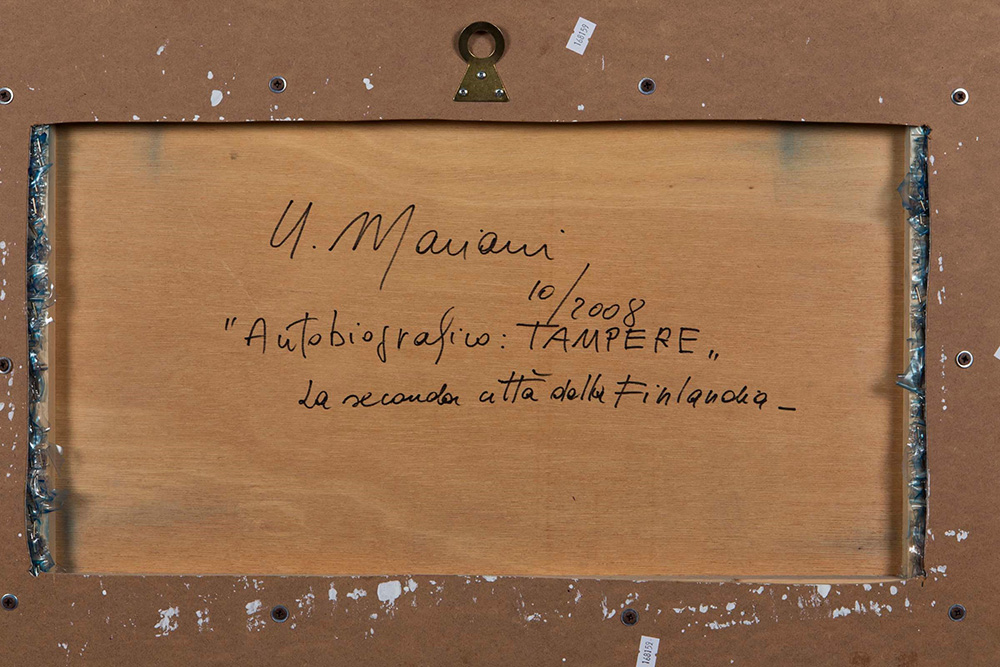 168159
U. Mariani
10/2008
"Autobiografico: TAMPERE„
La seconda città della Finlandia –
168159